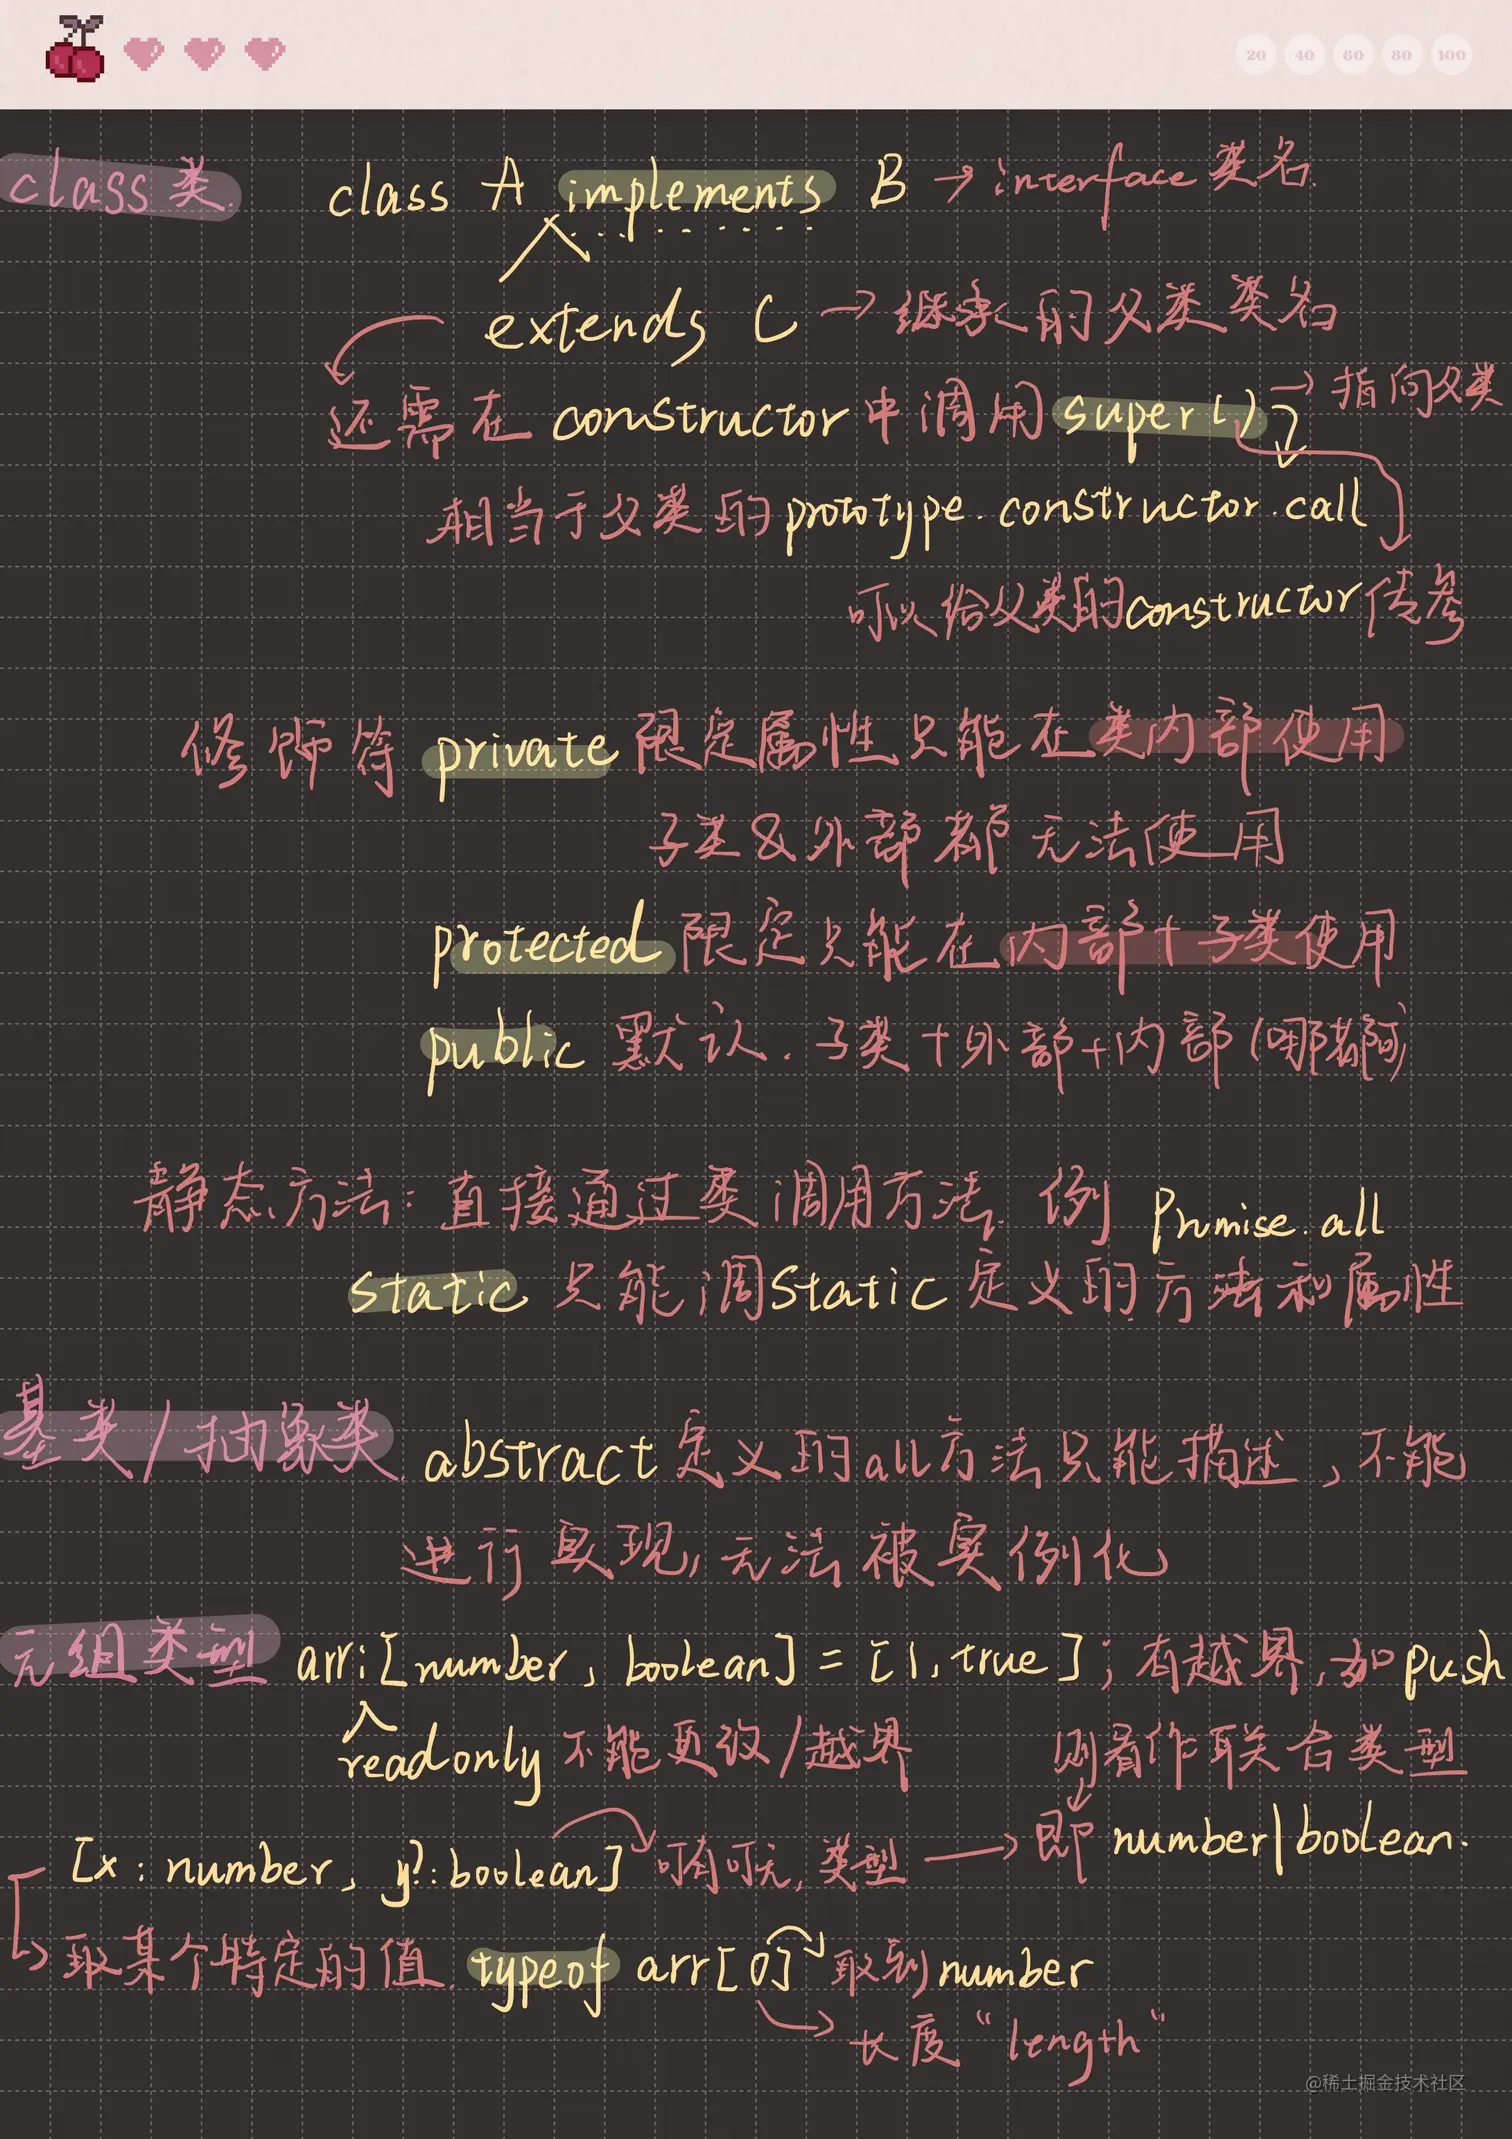 20 40 60 80 100
class类. class A implements B → interface 类名.
extends C → 继承的父类类名
还需在 constructor 中调用 super() → 指向父类
相当于父类的 prototype.constructor.call
可以给父类的constructor传参
修饰符 private 限定属性只能在类内部使用
子类&外部都无法使用
protected 限定只能在内部+子类使用
public 默认. 子类+外部+内部(哪都可)
静态方法: 直接通过类调用方法. 例 Promise.all
static 只能调static 定义的方法和属性
基类/抽象类. abstract 定义的all方法只能描述, 不能
进行实现, 无法被实例化
元组类型 arr:[number, boolean] = [1, true]; 有越界, 如push
readonly 不能更改/越界 则看作联合类型
[x: number, y?: boolean] 可有可无, 类型 → 即 number|boolean.
取某个特定的值. typeof arr[0] 取到number
长度 "length"
@稀土掘金技术社区